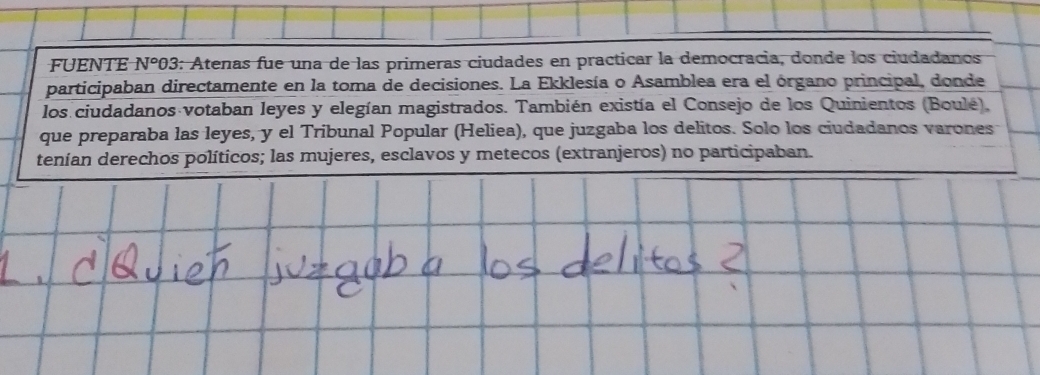 FUENTE N°03: Atenas fue una de las primeras ciudades en practicar la democracia, donde los ciudadanos
participaban directamente en la toma de decisiones. La Ekklesía o Asamblea era el órgano principal, donde
los ciudadanos votaban leyes y elegían magistrados. También existía el Consejo de los Quinientos (Boulé),
que preparaba las leyes, y el Tribunal Popular (Heliea), que juzgaba los delitos. Solo los ciudadanos varones
tenían derechos políticos; las mujeres, esclavos y metecos (extranjeros) no participaban.
1. ¿Quien juzgaba los delitos?